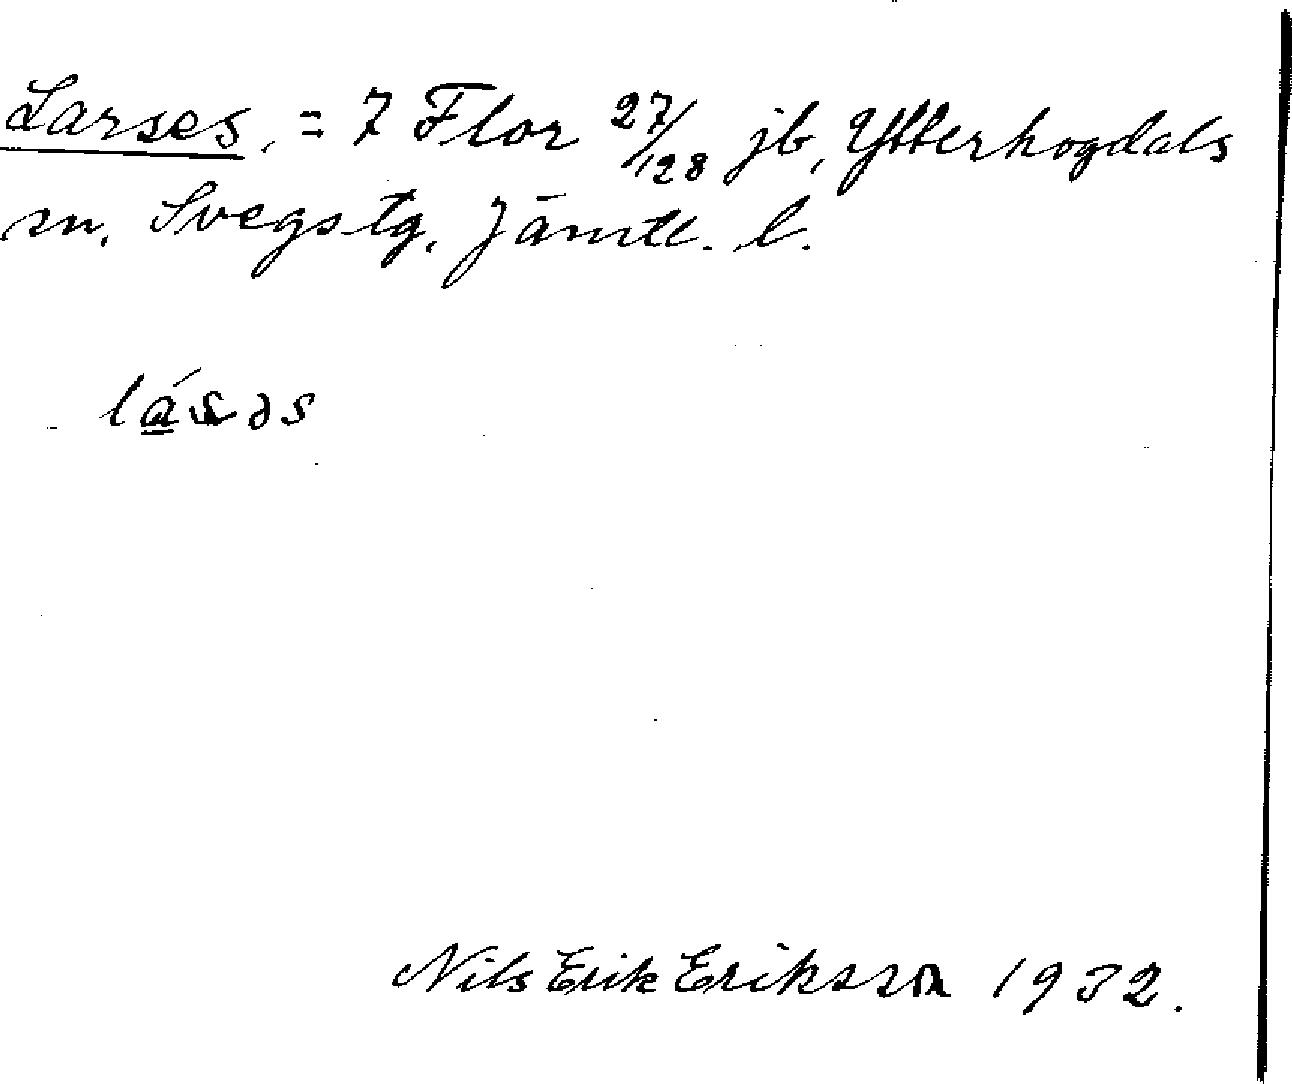 Larses, = 7 Flor 27/128 jb, Ytterhogdals
sn. Svegs tg, Jämtl. l.
lásəs
Nils Erik Eriksson 1932.